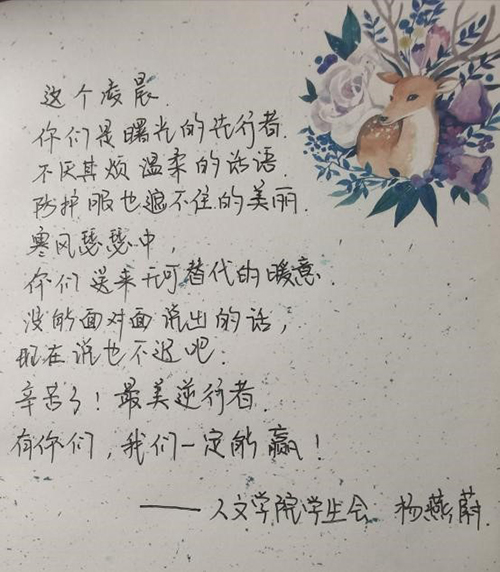 这个凌晨
你们是曙光的先行者.
不厌其烦温柔的话语.
防护服也遮不住的美丽.
寒风瑟瑟中,
你们送来无可替代的暖意.
没能面对面说出的话,
现在说也不迟吧.
辛苦了!最美逆行者.
有你们,我们一定能赢!
——人文学院学生会 杨燕蔚.